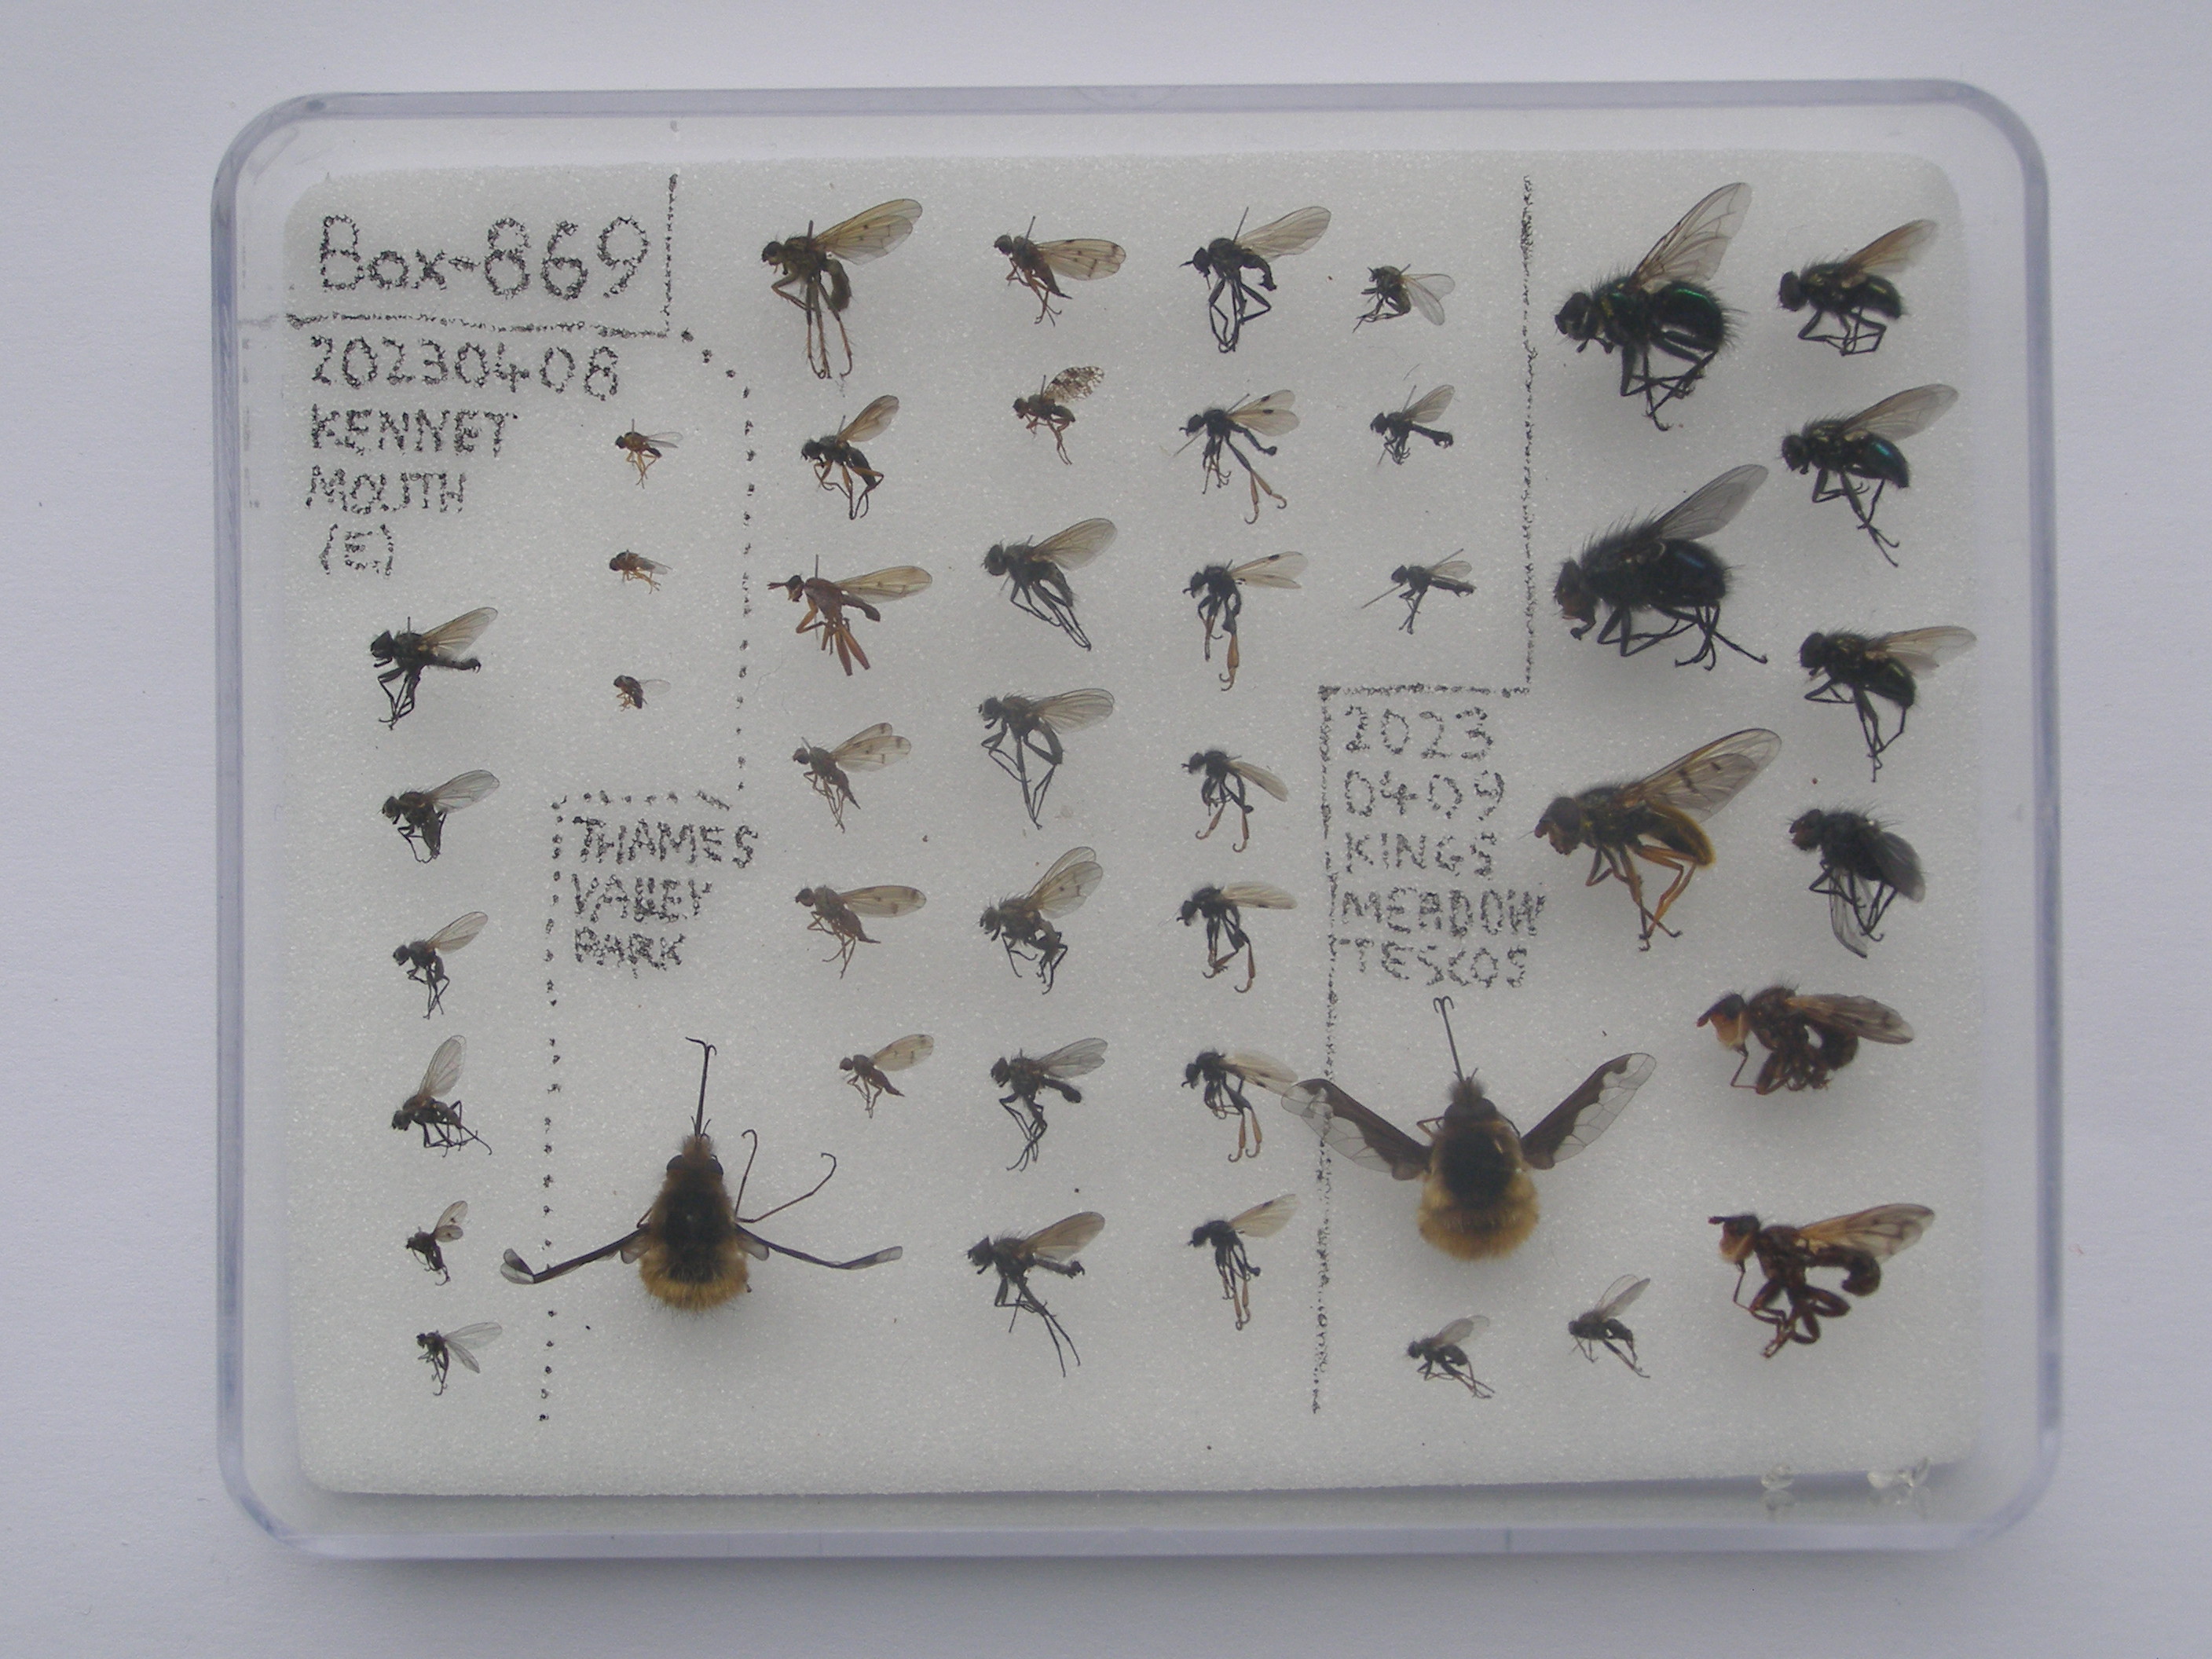 Box-869
20230408
KENNET
MOUTH
(E)
THAMES
VALLEY
PARK
2023
0409
KINGS
MEADOW
TESCOS